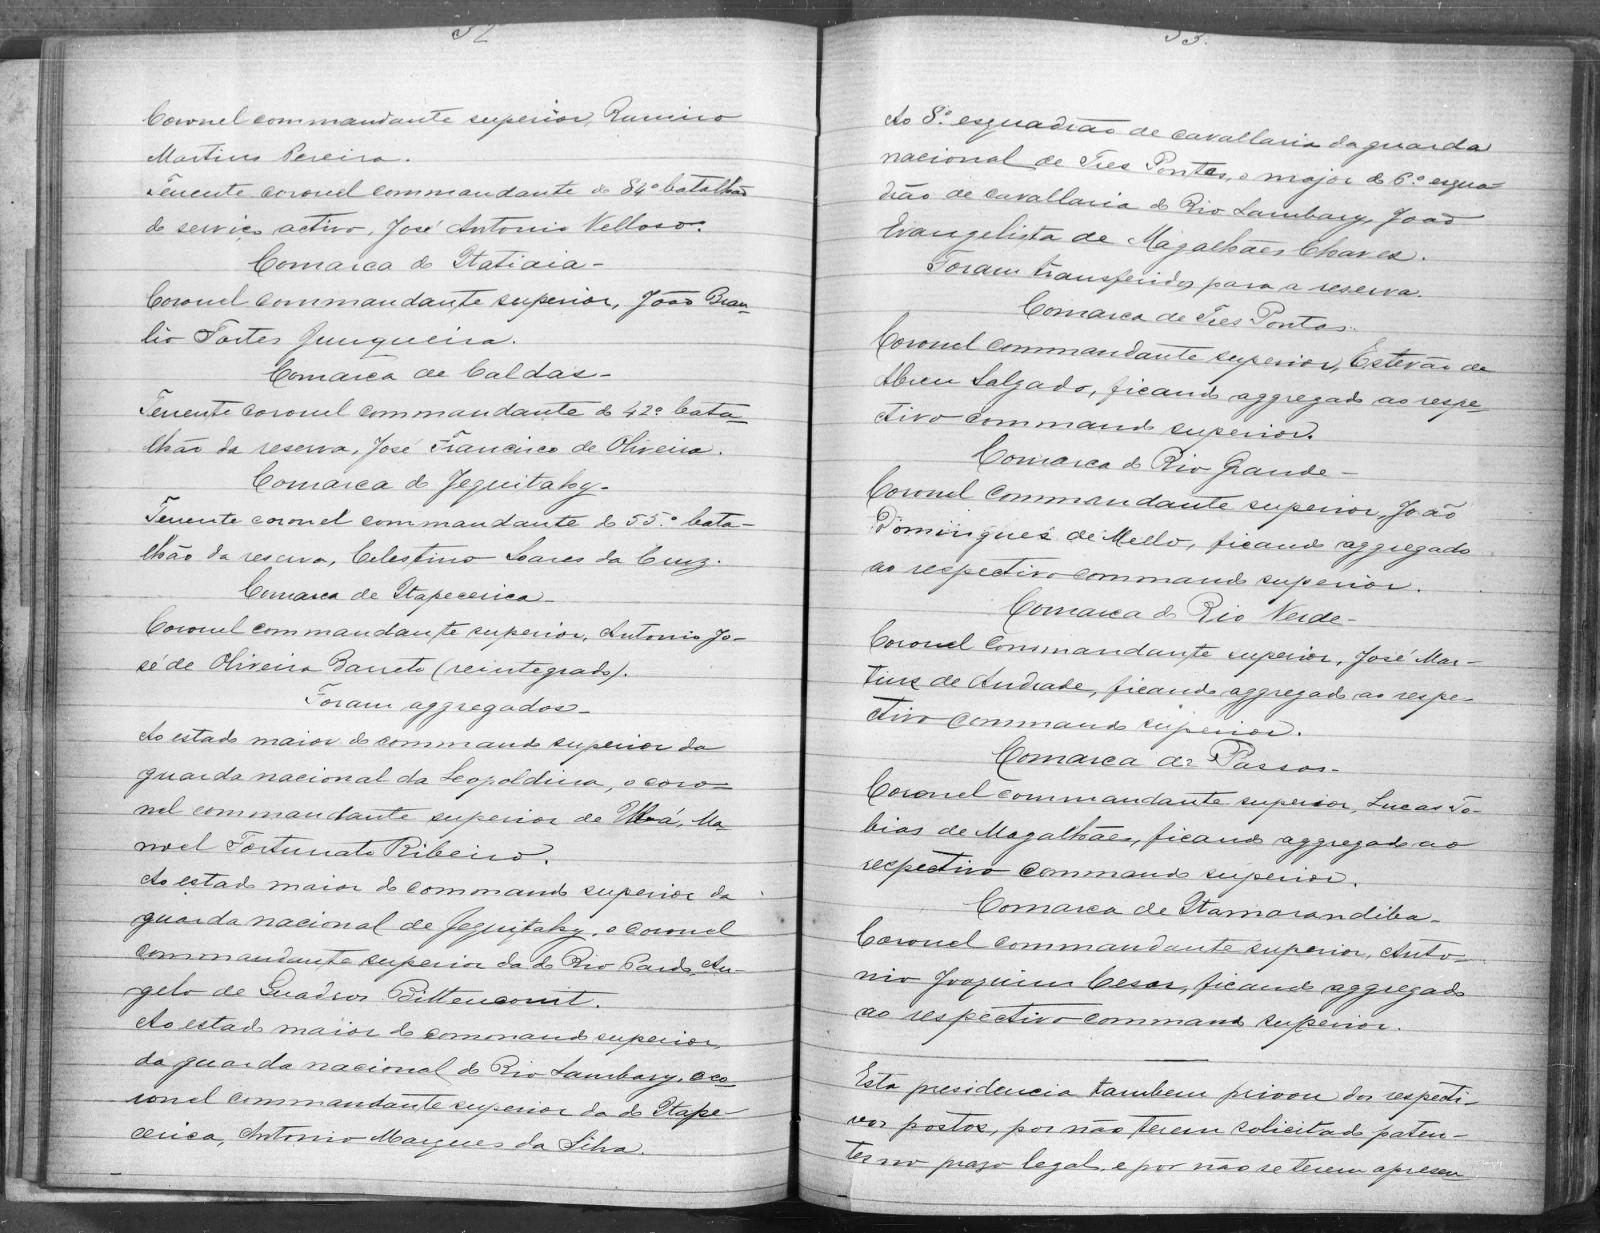 52
Coronel commandante superior, Ramiro
Martins Pereira.
Tenente coronel commandante do 84º batalhão
do serviço activo, José Antonio Velloso.
Comarca do Itatiaia -
Coronel commandante superior, João Brau-
lio Fortes Junqueira.
Comarca de Caldas -
Tenente coronel commandante do 42º bata-
lhão da reserva, José Francisco de Oliveira.
Comarca do Jequitahy -
Tenente coronel commandante do 55º bata-
lhão da reserva, Celestino Soares da Cruz.
Comarca de Itapecerica -
Coronel commandante superior, Antonio Jo-
sé de Oliveira Barreto (reintegrado).
Foram aggregados -
Ao estado maior do commando superior da
guarda nacional da Leopoldina, o coro-
nel commandante superior de Ubá, Ma-
noel Fortunato Ribeiro.
Ao estado maior do commando superior da
guarda nacional de Jequitahy, o coronel
commandante superior da do Rio Pardo, An-
gelo de Quadros Bittencourt.
Ao estado maior do commando superior,
da guarda nacional do Rio Lambary, o co-
ronel commandante superior da de Itape-
cerica, Antonio Marques da Silva.
53.
Ao 8º esquadrão de cavallaria da guarda
nacional de Tres Pontas, o major do 6º esqua-
drão de cavallaria do Rio Lambary, João
Evangelista de Magalhães Chaves.
Foram transferidos para a reserva.
Comarca de Tres Pontas -
Coronel commandante superior, Estevão de
Abreu Salgado, ficando aggregado ao respe-
ctivo commando superior.
Comarca do Rio Grande -
Coronel commandante superior, João
Domingues de Mello, ficando aggregado
ao respectivo commando superior.
Comarca do Rio Verde -
Coronel commandante superior, José Mar-
tins de Andrade, ficando aggregado ao respe-
ctivo commando superior.
Comarca de Passos -
Coronel commandante superior, Lucas To-
bias de Magalhães, ficando aggregado ao
respectivo commando superior.
Comarca de Itamarandiba -
Coronel commandante superior, Anto-
nio Joaquim Cesar, ficando aggregado
ao respectivo commando superior.
Esta presidencia tambem privou dos respecti-
vos postos, por não terem solicitado paten-
tes no prazo legal, e por não se terem apresen